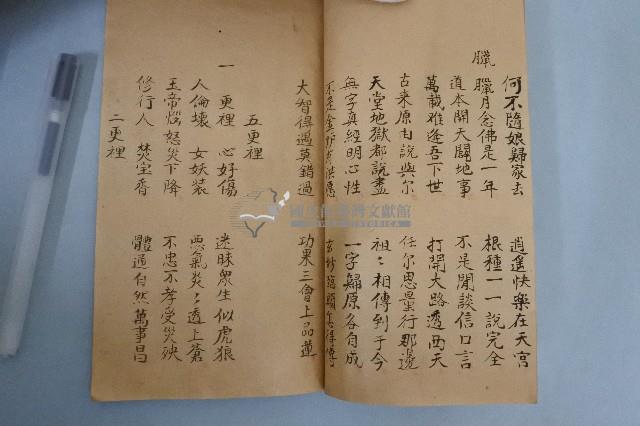 何不隨娘歸家去 逍遙快樂在天宮
臘
臘月念佛是一年 根種一一說完全
道本開天闢地事 不是閒談信口言
萬載难逢吾下世 打開大路透西天
古來原由說與尔 任尔思量行那邊
天堂地獄都說盡 祖〻相傳到于今
無字真經明心性 一字歸原各自成
大智得遇莫錯過 功果三會上品蓮
五更裡
一更裡 心好傷 迷昧眾生似虎狼
人倫壞 女妖裝 惡氣炎〻透上蒼
玉帝怒災下降 不忠不孝受災殃
修行人 焚宝香 體通自然萬事昌
二更裡
國史館臺灣文獻館
TAIWAN HISTORICA